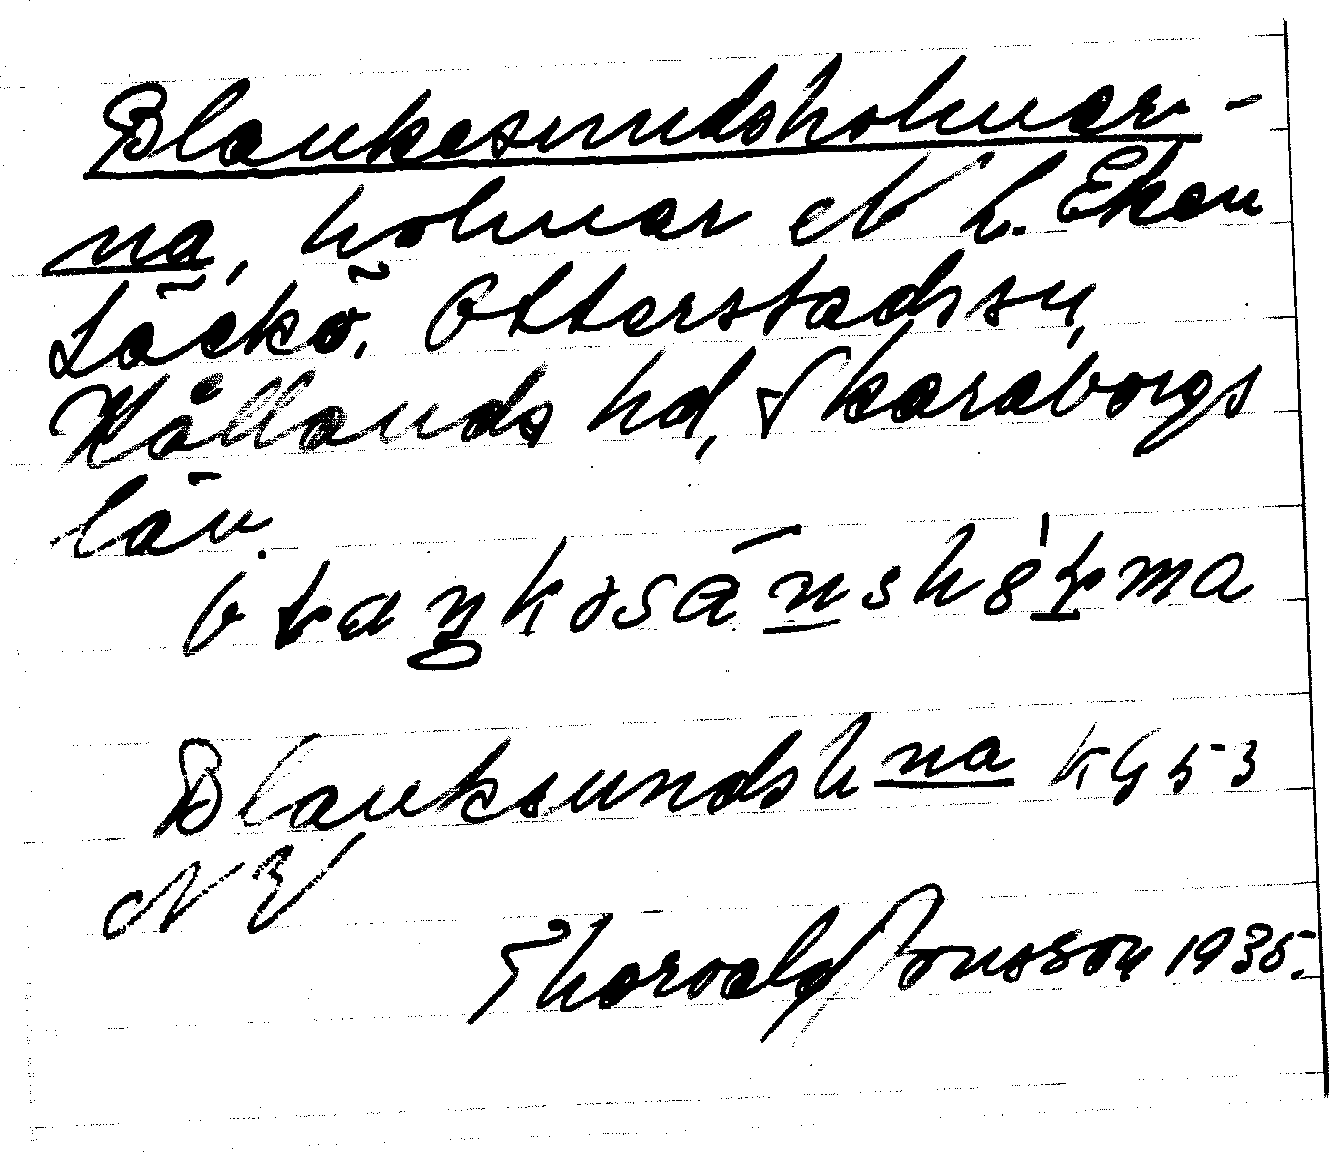 Blankesundsholmar-
na, holmar N L. Eken
Läckö, Otterstads sn,
Kållands hd, Skaraborgs
län.
Blanksundsh na KG 53
NV
Thorvald Jonsson 1935.